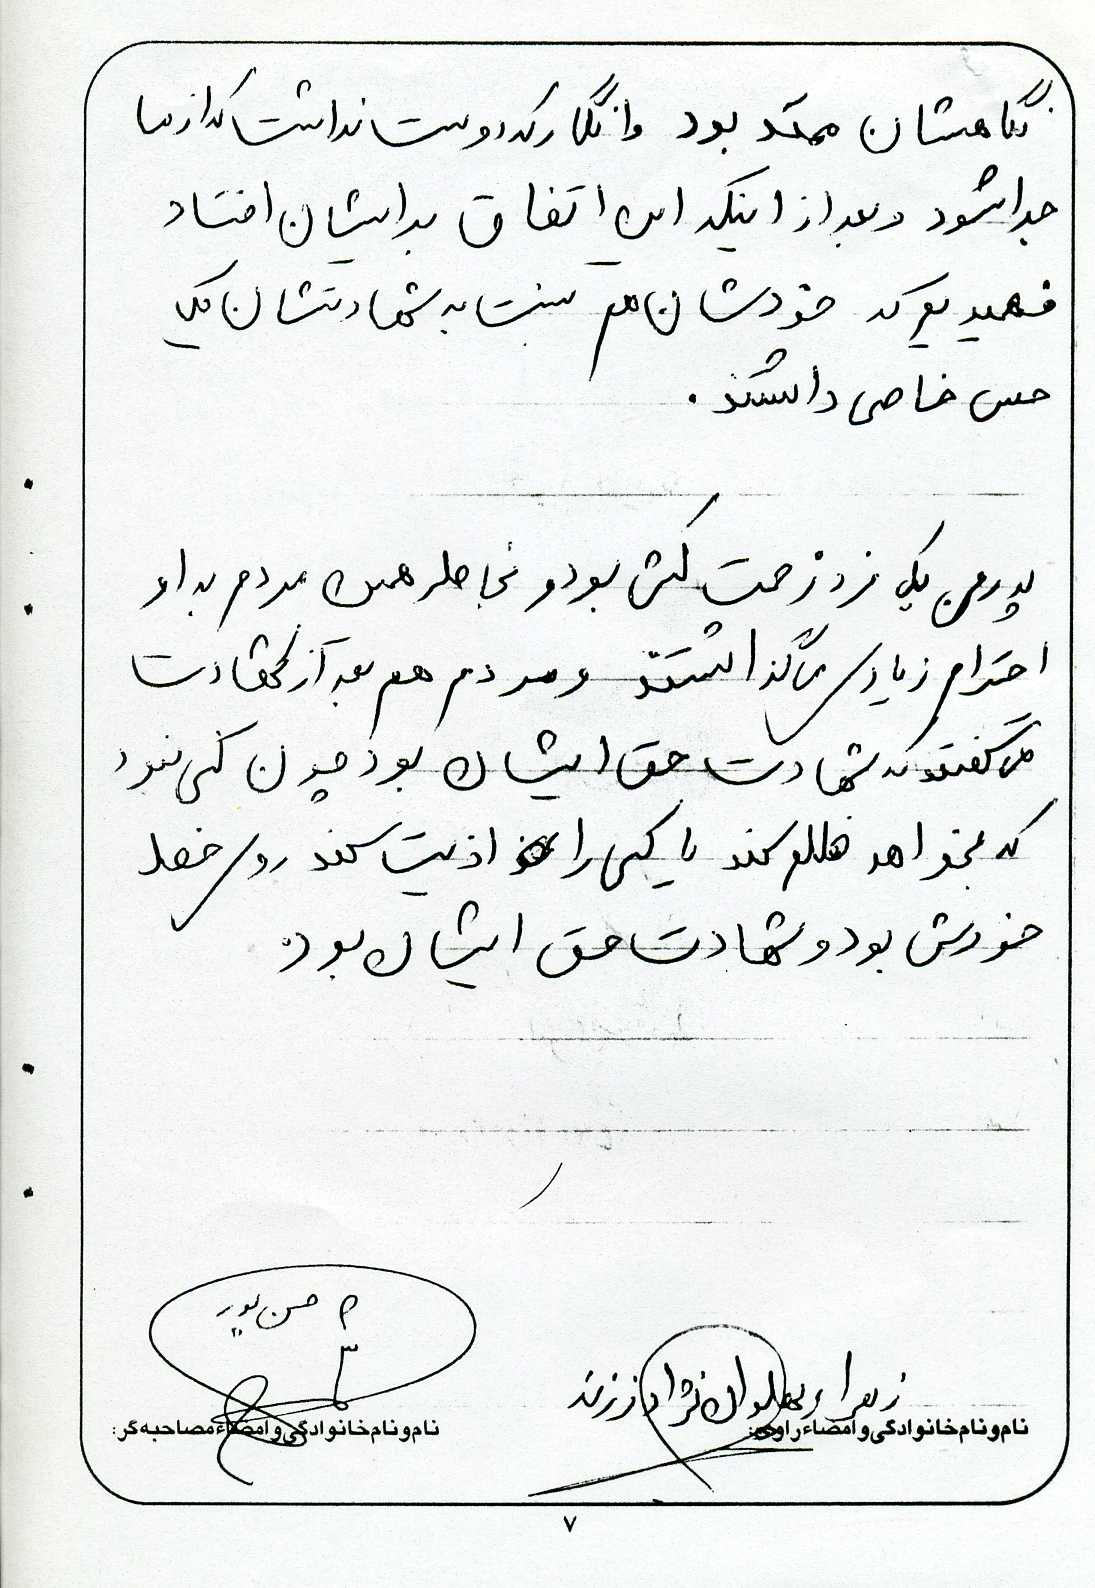 نگاهشان ممتد بود و انگار که دوست نداشت که از ما
جدا شود و بعد از اینکه این اتفاق برایشان افتاد
فهمیدیم که خودشان هم نسبت به شهادتشان یک
حس خاصی داشتند.
پدر من یک فرد زحمت کش بود و بخاطر همین مردم به او
احترام زیادی می گذاشتند و مردم هم بعد از شهادت
می گفتند که شهادت حق ایشان بود چون کسی نبود
که بخواهد ظلم کند یا کسی را اذیت کند روی خط
خودش بود و شهادت حق ایشان بود.
حسن پور
زهرا پهلوان نژاد فرزند
نام و نام خانوادگی و امضاء راوی:
نام و نام خانوادگی و امضاء مصاحبه گر:
۷